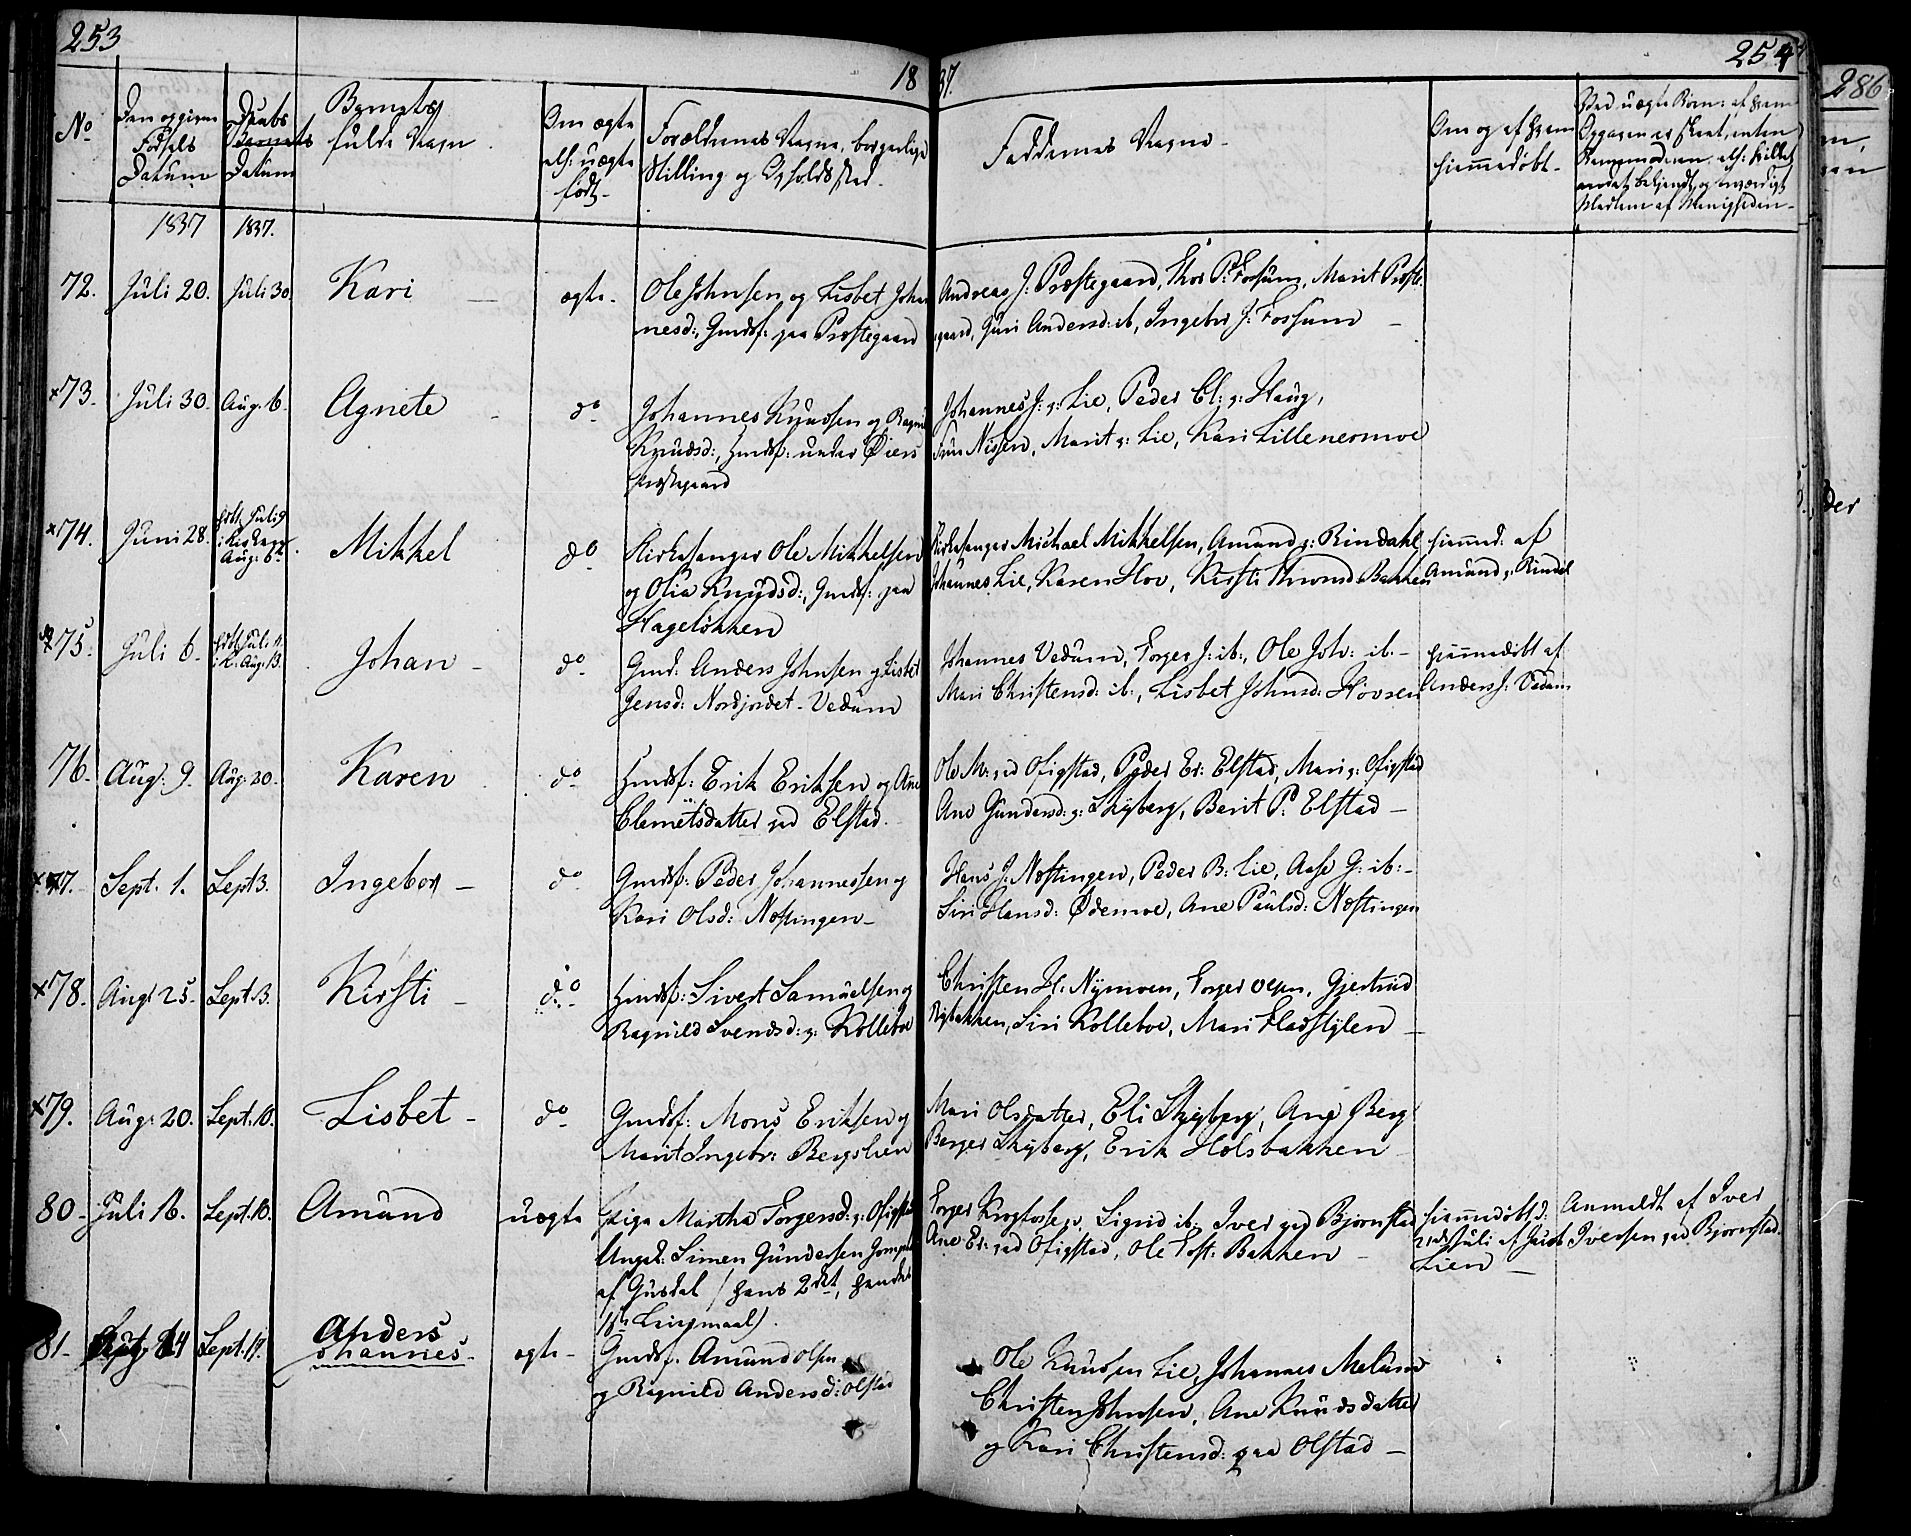 253
254
286
18 37.
No
Den opgivne Fødsels Datum
Daabs Datum
Barnets fulde Navn.
Om ægte els: uægte født-
Forældrenes Navne, borgerlige Stilling og Opholdssted.
Faddernes Navne-
Om og af hvem hjemmedøbt-
Ved uægte Børn: af hvem
1837 1837.
72. Juli 20. Juli 30. Kari ægte. Ole Johnsen og Lisbet Johan Andreas J: Præstegaard, Thor P: Fossum, Marit Præste
nesd:, Gmdsf: paa Præstegaard gaard, Guri Andersd: ib, Ingebor J: Fossum -
x73. Juli 30. Aug: 6. Agnete do Johannes Knudsen og Ragni Johannes J: s: Lie, Peder Cl: s: Haug,
Knudsd:, Hmdsf: under Øiers Nissen, Marit s: Lie, Kari Lillenermoe
Præstegaard
x74. Juni 28. Juli 9 i Kirken Aug: 6te Mikkel do Kirkesanger Ole Mikkelsen Kirkesanger Michael Mikkelsen, Amund s: Rindahl hjemmed: af
og Olia Knudsd:, Gmdsf: paa Johannes Lie, Karen Hov, Kirsti Bakken Amund s: Rindal
Hageløkken
75. Juli 6. i K: Aug: 13. Johan - do Gmd: Anders Johnsen og Lisbet Johannes Vedum, Torger J: ib:, Ole Joh: ib.- hjemmedøbt af
Jensd: Nordjordet-Vedum Mari Christensd: ib:, Lisbet Johnsd: Hovren Anders J: Vedum
76. Aug: 9. Aug: 20. Karen do Hmdsf: Erik Eriksen og Ane Ole M: ved Ofigstad, Peder Er: Elstad, Mari s: Ofigstad
Clemetsdatter ved Elstad. Ane Gundersd: s: Skyberg, Berit P: Elstad -
x77. Sept. 1. Sept 3. Ingebor - do Gmdsf: Peder Johannessen og Hans J: Nostingen, Peder B: Lie, Aase G: ib:-
Kari Olsd: Nostingen- Siri Hansd: Ødemoe, Ane Paulsd: Nostingen
x78. Aug: 25. Sept. 3. Kirsti - do Hmdsf: Sivert Samuelsen og Christen H: Nymoen, Torger, Gjertrud
Ragnild Svendsd: s: Kolleboe Nybakken, Siri Kolleboe, Mari Fladstylen -
x79. Aug: 20. Sept: 10. Lisbet - do Gmdsf: Mons Eriksen og Mari Olsdatter, Eli Skyberg, Ane Berg
Marit Ingebr: Bergslien Berger Skyberg, Erik Holsbakken
80- Juli 16. Sept. 10. Amund uægte Pige Martha Torgersd: s: Ofigstad Torger, Sigrid ib: Iver ved Bjørnstad hjemmedøbt d: Anmeldt af Iver
Ungk: Simen Gundersen Ane Er: ved Ofigstad, Ole Bakken - Juli af Jacob Iversen ved Bjørnstad.
af Gusdal /hans 2det, hendes Lien -
1ste Leiermaal).
81- Sept. 17. Anders
Johannes. ægte- Gmdsf. Amund Olsen Ole Knudsen Lie, Johannes Melum
og Ragnild Andersd: Olstad Christen Johnsen, Ane Knudsdatter
og Kari Christensd: paa Olstad -